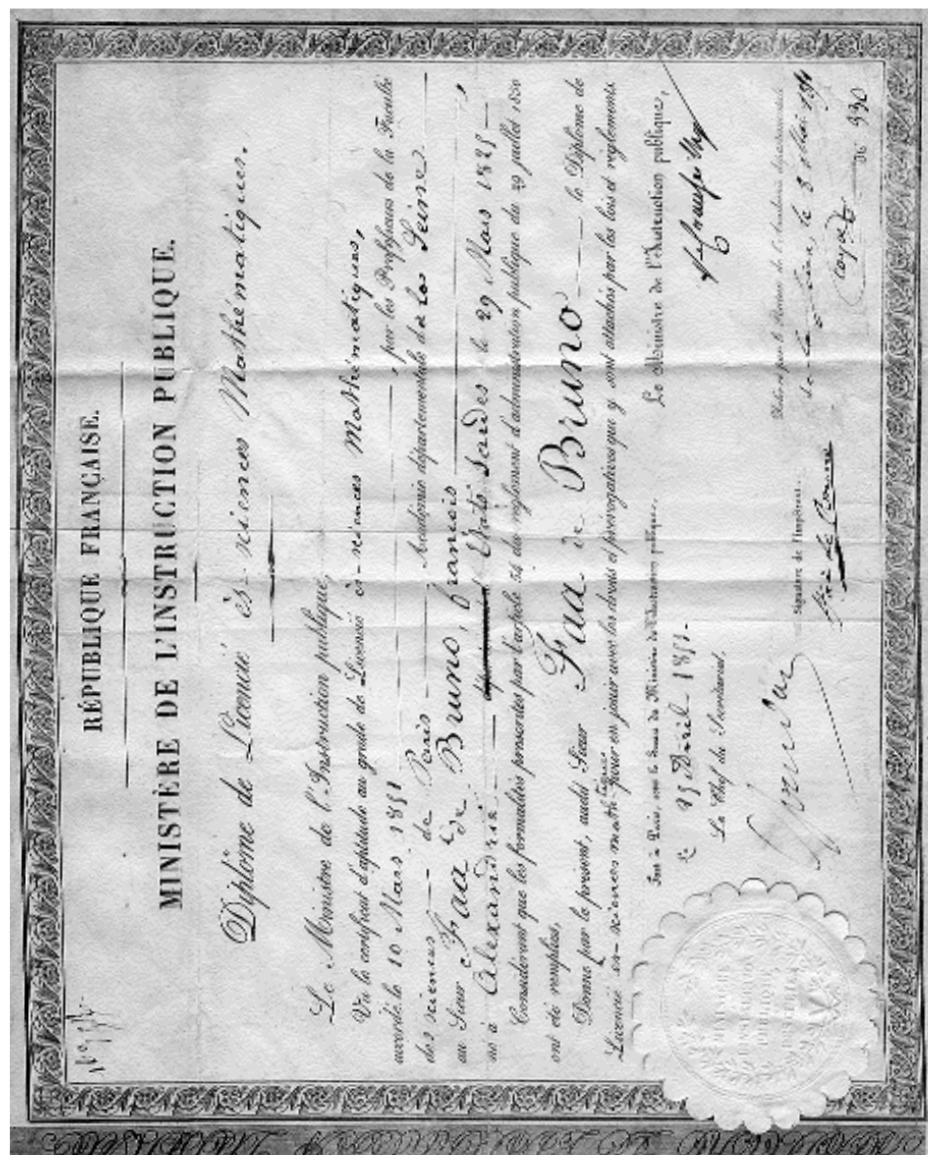 RÉPUBLIQUE FRANÇAISE.
MINISTÈRE DE L'INSTRUCTION PUBLIQUE.
Diplôme de Licencié ès-sciences Mathématiques.
Le Ministre de l'Instruction publique,
Vu le certificat d'aptitude au grade de Licencié ès-sciences Mathématiques,
accordé le 10 Mars 1851, par les Professeurs de la Faculté
des sciences de Paris Académie départementale de la Seine
au Sieur Faa de Bruno, françois
né à Alexandrie Etats Sardes le 29 Mars 1825
Considérant que les formalités prescrites par l'article 54 du règlement d'administration publique du 29 juillet 1850
ont été remplies,
Donne par le présent, audit Sieur Faa de Bruno le Diplôme de
Licencié ès-sciences math. pour en jouir avec les droits et prérogatives qui y sont attachés par les lois et règlements.
Fait à Paris, sous le Sceau du Ministère de l'Instruction publique,
Le 25 Avril 1851.
Le Chef du Secrétariat,
Le Ministre de l'Instruction publique,
Signature de l'Impétrant.
Délivré par le Recteur de l'Académie départementale
de la Seine, le 3 Mai 1851
MINISTÈRE
DE L'INSTRUCTION
PUBLIQUE